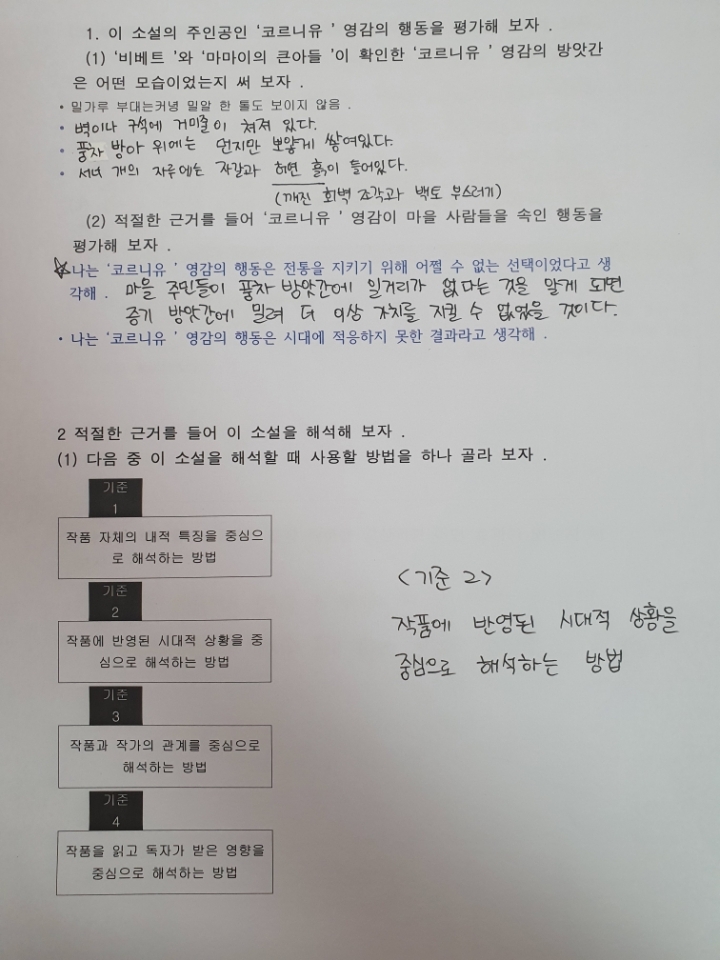 1. 이 소설의 주인공인 ‘코르니유 ’ 영감의 행동을 평가해 보자 .
(1) ‘비베트 ’와 ‘마마이의 큰아들 ’이 확인한 ‘코르니유 ’ 영감의 방앗간
은 어떤 모습이었는지 써 보자 .
• 밀가루 부대는커녕 밀알 한 톨도 보이지 않음 .
• 벽이나 구석에 거미줄이 쳐져 있다.
• 풍차 방아 위에는 먼지만 뽀얗게 쌓여있다.
• 서너 개의 자루에는 자갈과 허연 흙이 들어있다.
(깨진 회벽 조각과 백토 부스러기)
(2) 적절한 근거를 들어 ‘코르니유 ’ 영감이 마을 사람들을 속인 행동을
평가해 보자 .
☆나는 ‘코르니유 ’ 영감의 행동은 전통을 지키기 위해 어쩔 수 없는 선택이었다고 생
각해 . 마을 주민들이 풍차 방앗간에 일거리가 없다는 것을 알게 되면
증기 방앗간에 밀려 더 이상 가치를 지킬 수 없었을 것이다.
• 나는 ‘코르니유 ’ 영감의 행동은 시대에 적응하지 못한 결과라고 생각해 .
2 적절한 근거를 들어 이 소설을 해석해 보자 .
(1) 다음 중 이 소설을 해석할 때 사용할 방법을 하나 골라 보자 .
기준
1
작품 자체의 내적 특징을 중심으
로 해석하는 방법
기준
2
작품에 반영된 시대적 상황을 중
심으로 해석하는 방법
기준
3
작품과 작가의 관계를 중심으로
해석하는 방법
기준
4
작품을 읽고 독자가 받은 영향을
중심으로 해석하는 방법
<기준 2>
작품에 반영된 시대적 상황을
중심으로 해석하는 방법